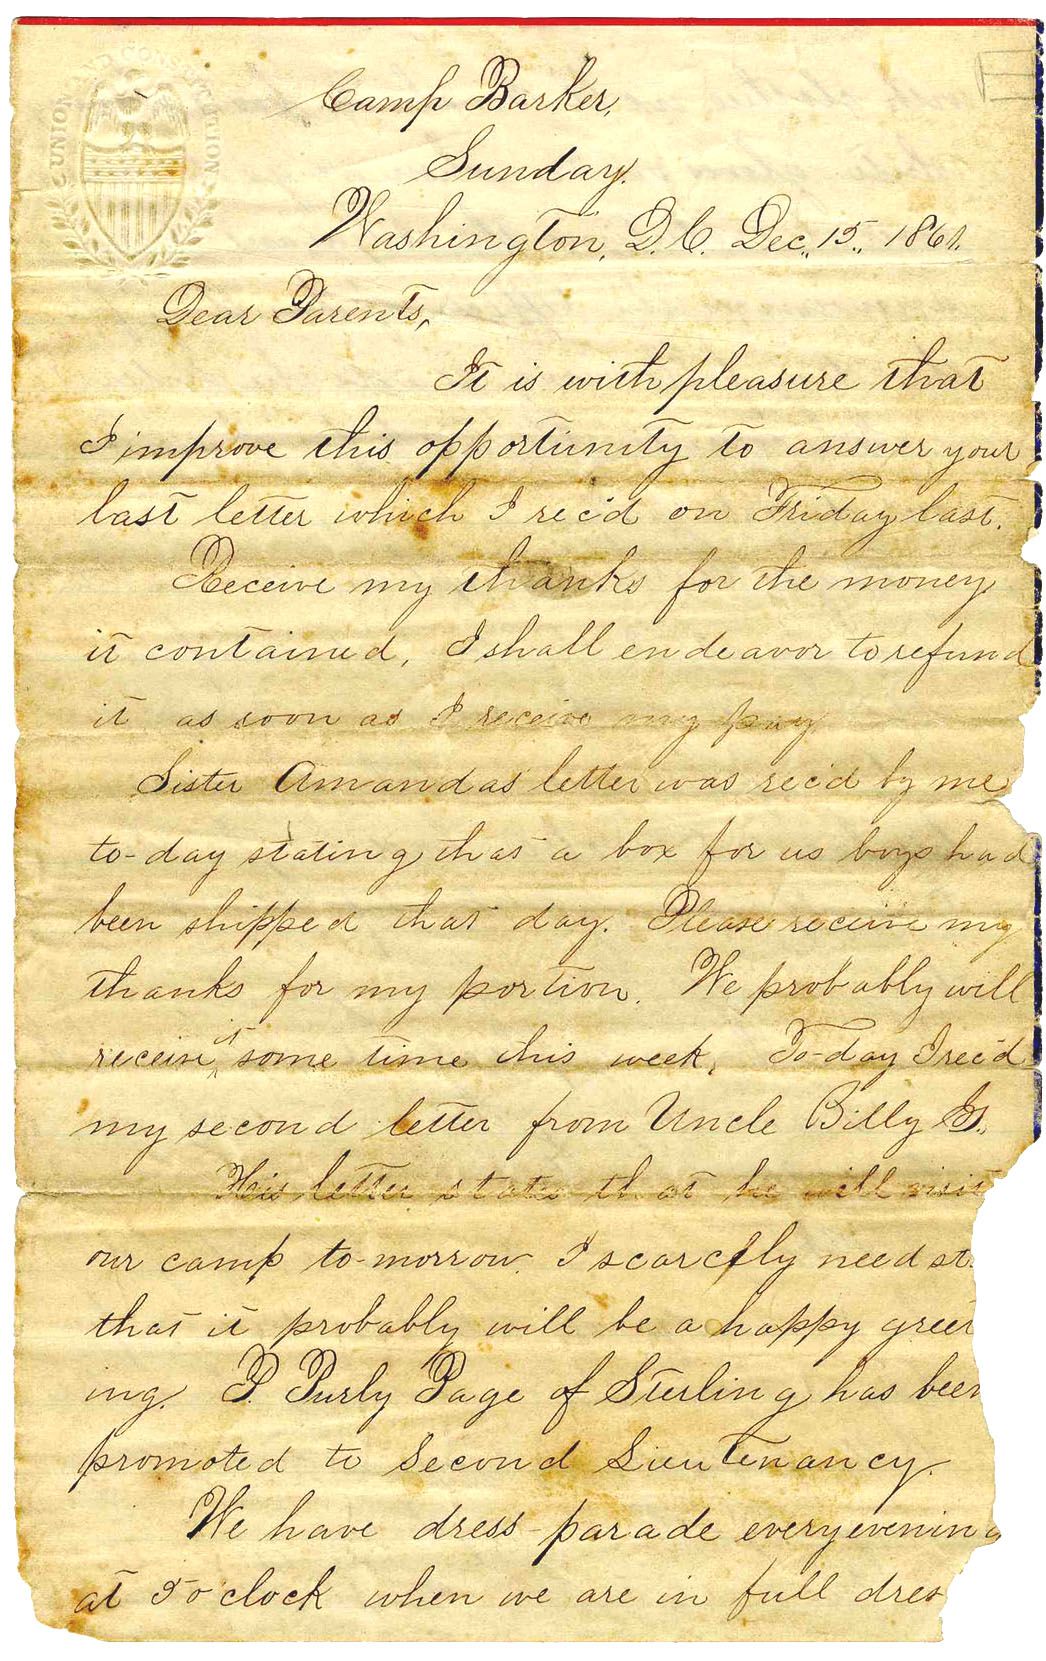 UNION AND CONSTITUTION
Camp Barker,
Sunday.
Washington, D.C. Dec., 15., 1861.
Dear Parents,
It is with pleasure that
I improve this opportunity to answer your
last letter which I rec'd on Friday last.
Receive my thanks for the money
it contained, I shall endeavor to refund
it as soon as I receive my pay
Sister Amandas letter was rec'd by me
to-day stating that a box for us boys had
been shipped that day. Please receive my
thanks for my portion. We probably will
receive it some time this week, To-day I rec'd
my second letter from Uncle Billy G.,
His letter states that he will visit
our camp to-morrow. I scarcely need st
that it probably will be a happy greet
ing. P. Purly Page of Sterling has been
promoted to Second Lieutenancy.
We have dress-parade every evening
at 5 o'clock when we are in full dres